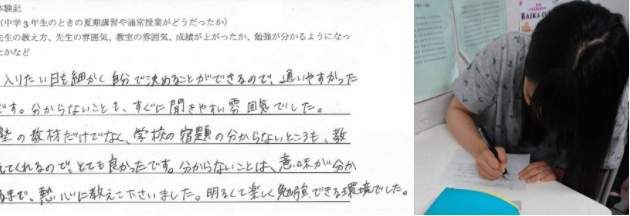 体験記
（中学３年生のときの夏期講習や通常授業がどうだったか）
先生の教え方、先生の雰囲気、教室の雰囲気、成績が上がったか、勉強が分かるようになっ
たかなど
入りたい日を細かく自分で決めることができるので、通いやすかった
です。分からないことも、すぐに聞きやすい雰囲気でした。
塾の教材だけでなく、学校の宿題の分からないところも、教
えてくれるので、とても良かったです。分からないことは、意味が分か
るまで、熱心に教えて下さいました。明るくて楽しく勉強できる環境でした。
BAIKA